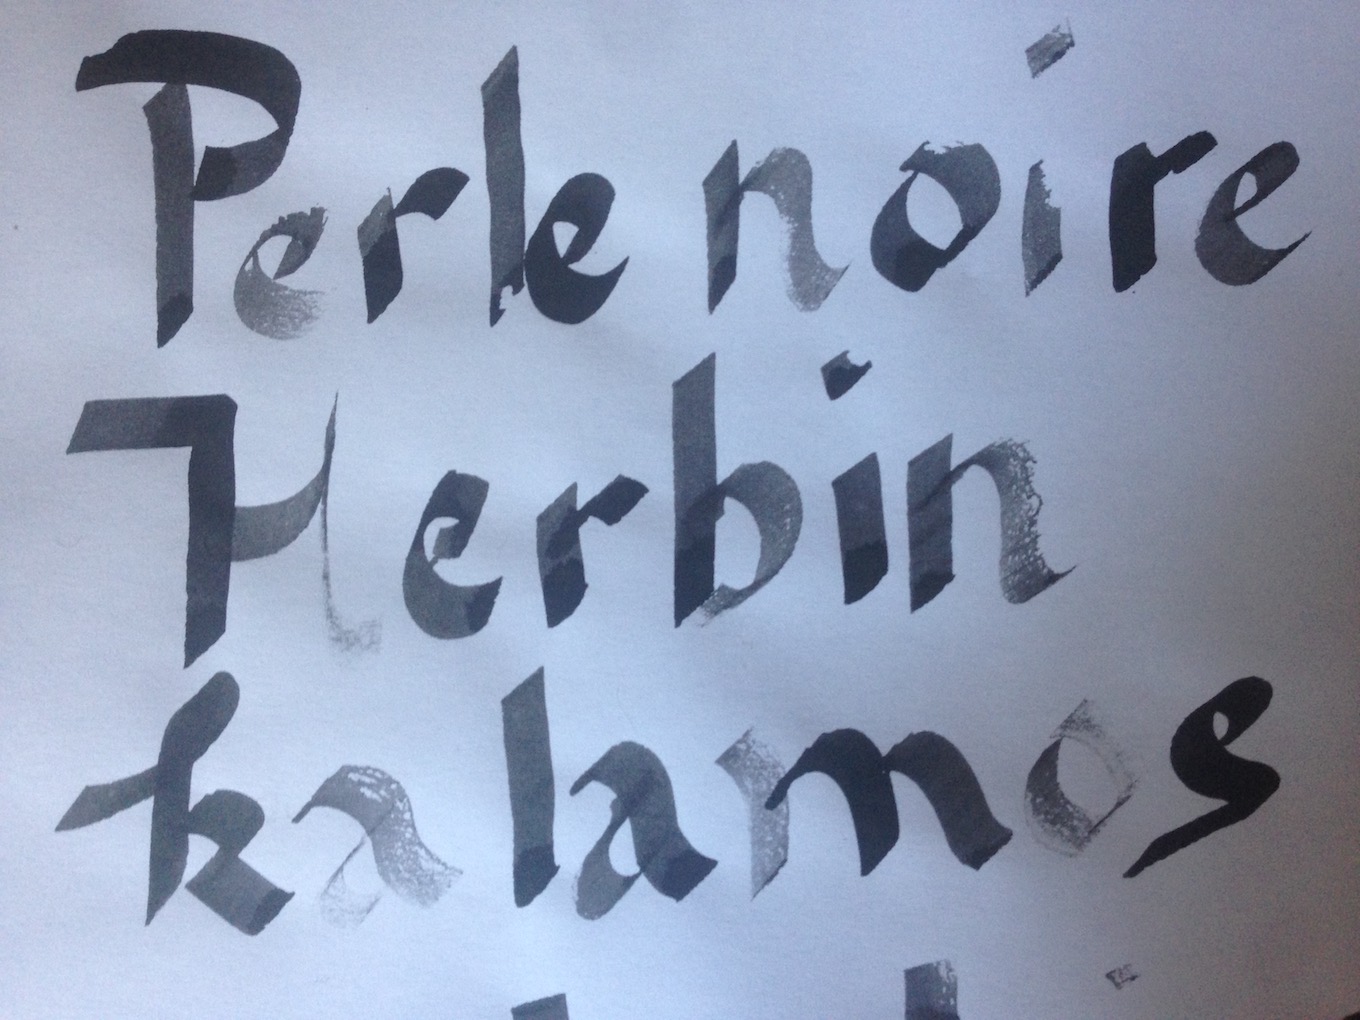 Perle noire
Herbin
kalamos